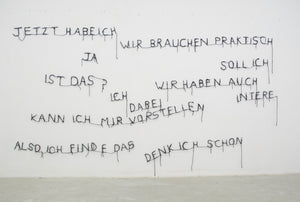 JETZT HABE ICH
WIR BRAUCHEN PRAKTISCH
JA
SOLL ICH
IST DAS ?
WIR HABEN AUCH
ICH
INTERE
DABEI
KANN ICH MIR VORSTELLEN
ALSO, ICH FINDE DAS
DENK ICH SCHON